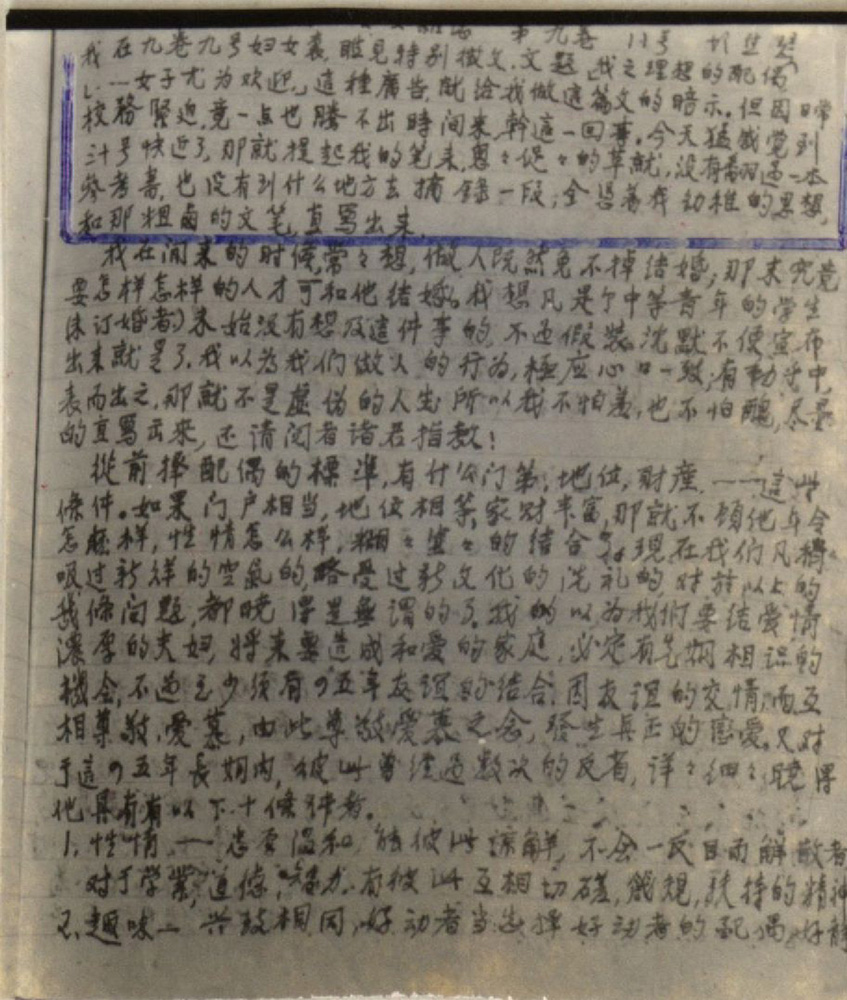 第九卷 11号
我在九卷九号妇女杂志瞧见特别徵文,文题「我之理想的配偶
」……女子尤为欢迎。這種廣告,就给我做這篇文的暗示。但因日常
校務緊迫,竟一点也腾不出時间来幹這一回事。今天猛感觉到
三十号快近了,那就提起我的笔来,恩々促々的草就,没有看过一本
參考書,也没有到什么地方去摘錄一段;全凭着我幼稚的思想,
和那粗鹵的文笔,直写出来。
我在闲来的时候,常々想,做人既然免不掉结婚;那末究竟
要怎样怎样的人才可和他结婚。我想凡是个中等青年的学生
(未订婚者)未始没有想及這件事的,不过假裝沈默不便宣布
出来就是了。我以为我们做人的行为,極应心口一致;有動乎中,
表而出之,那就不是虚偽的人生。所以我不怕羞,也不怕醜,尽量
的直写出来,还请阅者诸君指教!
從前擇配偶的標準,有什么门第,地位,财產……這些
條件。如果门户相当,地位相等,家财丰富,那就不顧他年令
怎麽样,性情怎么样,糊々塗々的结合。現在我们凡稍
吸过新鲜的空氣的,略受过新文化的洗礼的,对於以上的
幾條问题,都晓得是無谓的了。我的以为我们要结爱情
濃厚的夫妇,将来要造成和爱的家庭,必定有先期相识的
機会,不过至少须有四五年友谊的结合,因友谊的交情而互
相尊敬,爱慕,由此尊敬爱慕之念,發生真正的恋爱。又对
于這四五年長期内,彼此曾经过数次的反省,详々细々,晓得
他具有以下十條件者。
1. 性情——忠厚温和,能彼此諒解,不会一反目而解散者
对于学業,道德,智力,有彼此互相切磋,箴規,扶持的精神
2. 趣味——兴致相同,好动者当选择好动者的配偶,好静